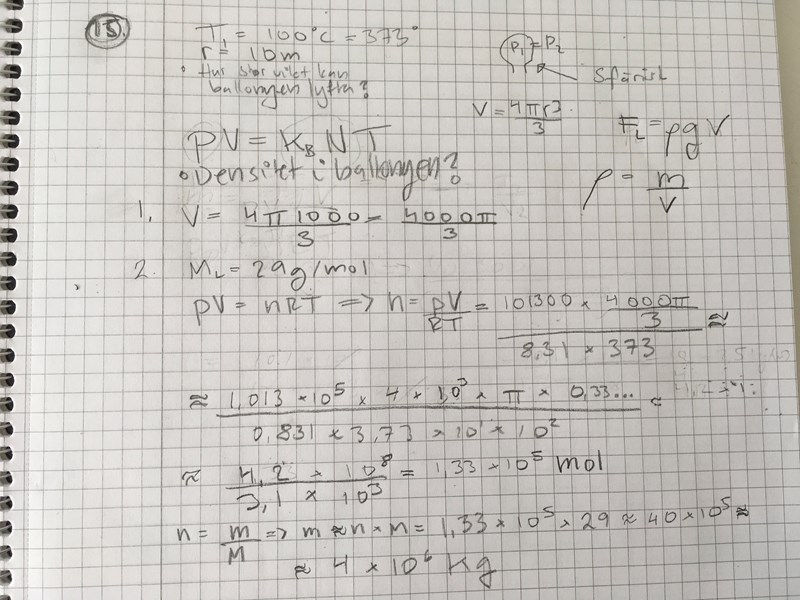 15.
T₁ = 100°C = 373°
r = 10m
• Hur stor vikt kan
ballongen lyfta?
P₁ = P₂
Sfärisk
V = 4πr³/3
F_L = ρgV
ρ = m/V
PV = K_B N T
• Densitet i ballongen?
1. V = 4π1000/3 = 4000π/3
2. M_L = 29g/mol
pV = nRT => n = pV/RT = (101300 × 4000π/3)/(8,31 × 373) ≈
≈ (1,013 × 10⁵ × 4 × 10³ × π × 0,33...)/(0,831 × 3,73 × 10¹ × 10²) ≈
≈ (4,2 × 10⁸)/(3,1 × 10³) = 1,33 × 10⁵ mol
n = m/M => m ≈ n × M = 1,33 × 10⁵ × 29 ≈ 40 × 10⁵ ≈
≈ 4 × 10⁶ Kg